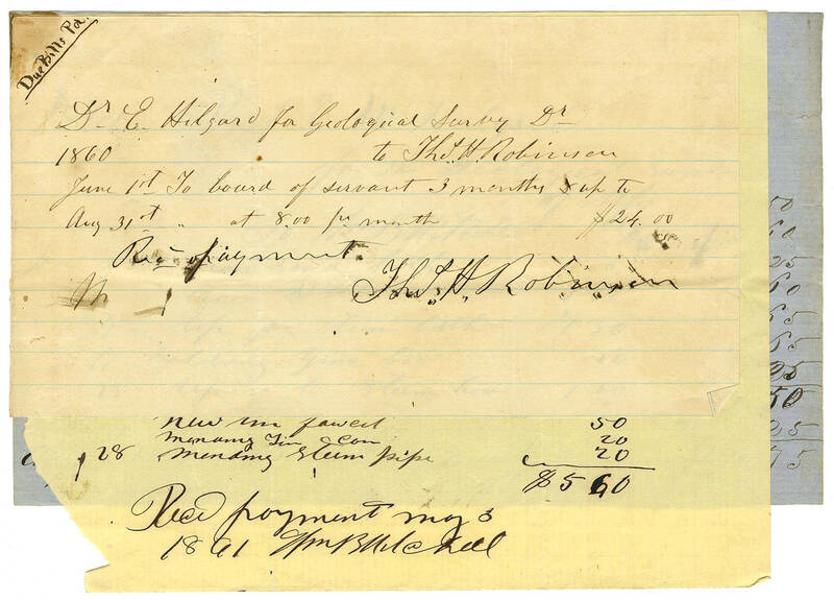 Due Bills Pd.
Dr. E. Hilgard for Geological Survey Dr
1860 to Thos. H. Robinson
June 1st To board of servant 3 months up to
Aug 31st " at 8.00 per month $24.00
Rec payment
Thos. H. Robinson
50
60
25
60
65
65
25
50
25
75
New faucet 50
Mending Tin Can 20
28 Mending Steem pipe 20
$5 60
Recd payment may 3
1861 Wm B Mitchell